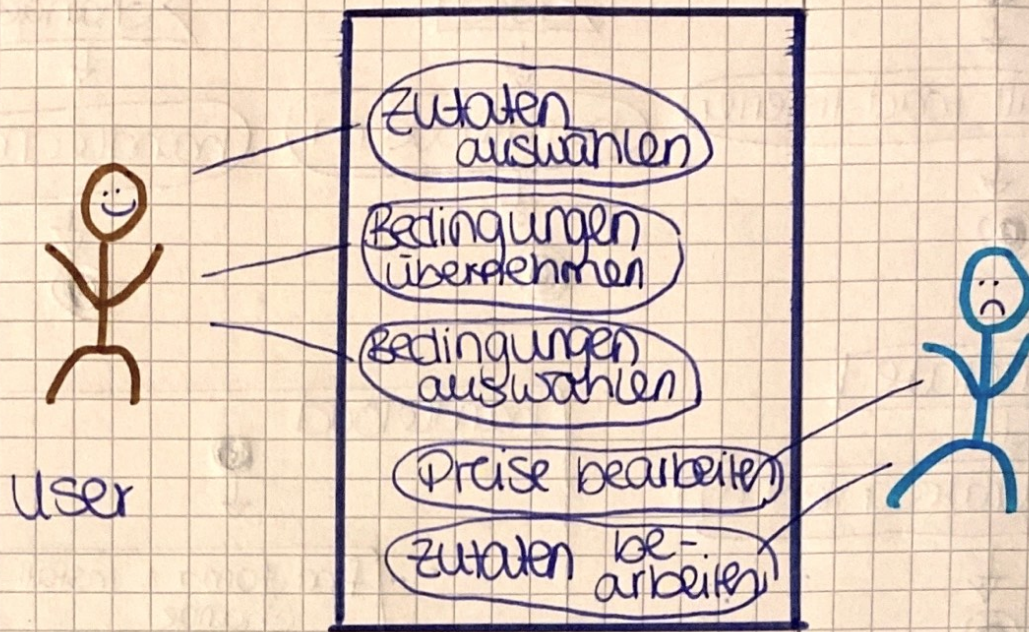 Zutaten
auswählen
Bedingungen
übernehmen
Bedingungen
auswählen
Preise bearbeiten
Zutaten be-
arbeiten
User